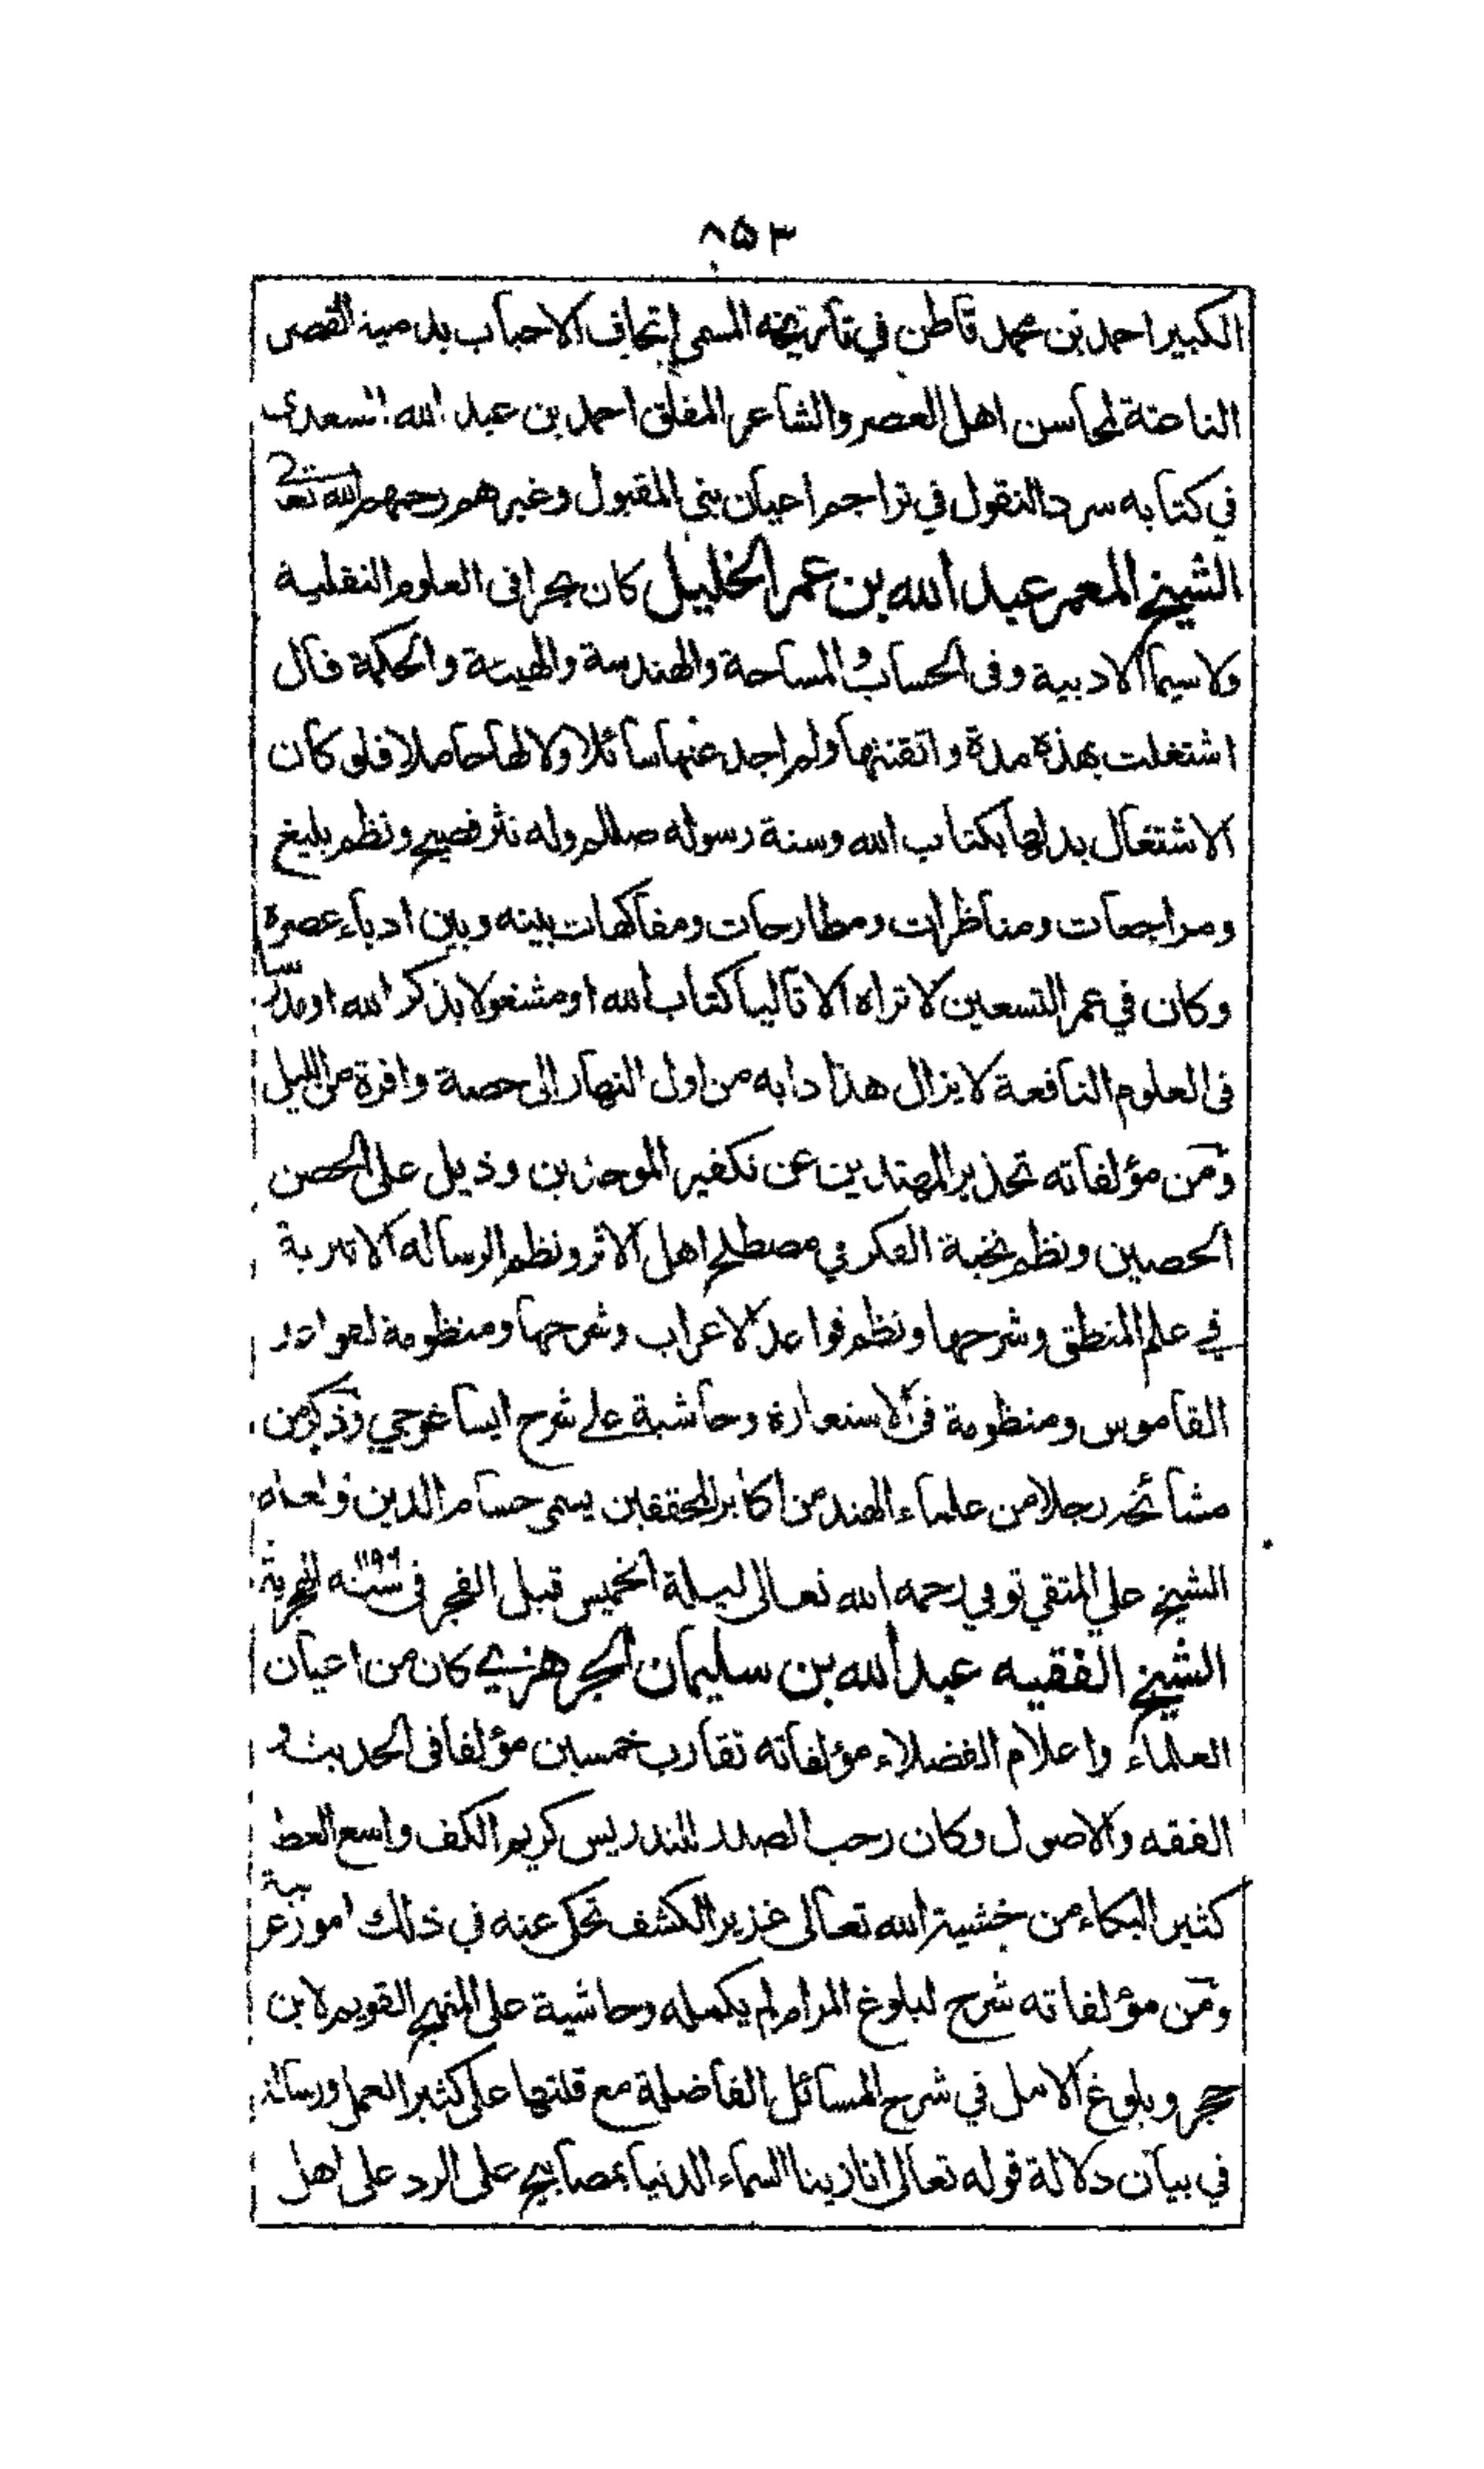 ٨٥٣
الكبير احمد بن محمد قاطن في تاريخه المسمى اتحاف الاحباب بدمية القصر
الناعتة لمحاسن اهل العصر والشاعر المفلق احمد بن عبد الله السعدي
في كتابه سرد النقول في تراجم اعيان بني المقبول وغيرهم رحمهم الله تعا
الشيخ المعمر عبد الله بن عمر الخليل كان بحرا في العلوم النقلية
ولا سيما الادبية وفى الحساب والمساحة والهندسة والهيئة والحكمة قال
اشتغلت بهذه مدة واتقنتها ولم اجد عنها سائلا ولا لها حاملا فلو كان
الاشتغال بدلها بكتاب الله وسنة رسوله صللم وله نثر فصيح ونظم بليغ
ومراجعات ومناظرات ومطارحات ومفاكهات بينه وبين ادباء عصره
وكان في عمر التسعين لا تراه الا تاليا كتاب الله او مشغولا بذكر الله او مدرسا
فى العلوم النافعة لا يزال هذا دابه من اول النهار الى حصة وافرة من الليل
ومن مؤلفاته تحذير المهتدين عن تكفير الموحدين وذيل على الحصن
الحصين ونظم نخبة الفكر في مصطلح اهل الاثر ونظم الرسالة الاثيرية
في علم المنطق وشرحها ونظم قواعد الاعراب وشرحها ومنظومة لقواعد
القاموس ومنظومة في الاستعارة وحاشية على شرح ايساغوجي وذكر من
مشائخه رجلا من علماء الهند من اكابر المحققين يسمى حسام الدين ولعله
الشيخ علي المتقي توفي رحمه الله تعالى ليلة الخميس قبل الفجر فى سنة ١١٩٦ الهجرية
الشيخ الفقيه عبد الله بن سليمان الجرهزي كان من اعيان
العلماء واعلام الفضلاء مؤلفاته تقارب خمسين مؤلفا فى الحديث و
الفقه والاصول وكان رحب الصدر للتدريس كريم الكف واسع العطية
كثير البكاء من خشية الله تعالى غزير الكشف تحكى عنه في ذلك امور
ومن مؤلفاته شرح لبلوغ المرام لم يكمله وحاشية على المنهج القويم لابن
حجر وبلوغ الامل في شرح المسائل الفاضلة مع قلتها على كثير العمل ورسالة
في بيان دلالة قوله تعالى انا زينا السماء الدنيا بمصابيح على الرد على اهل